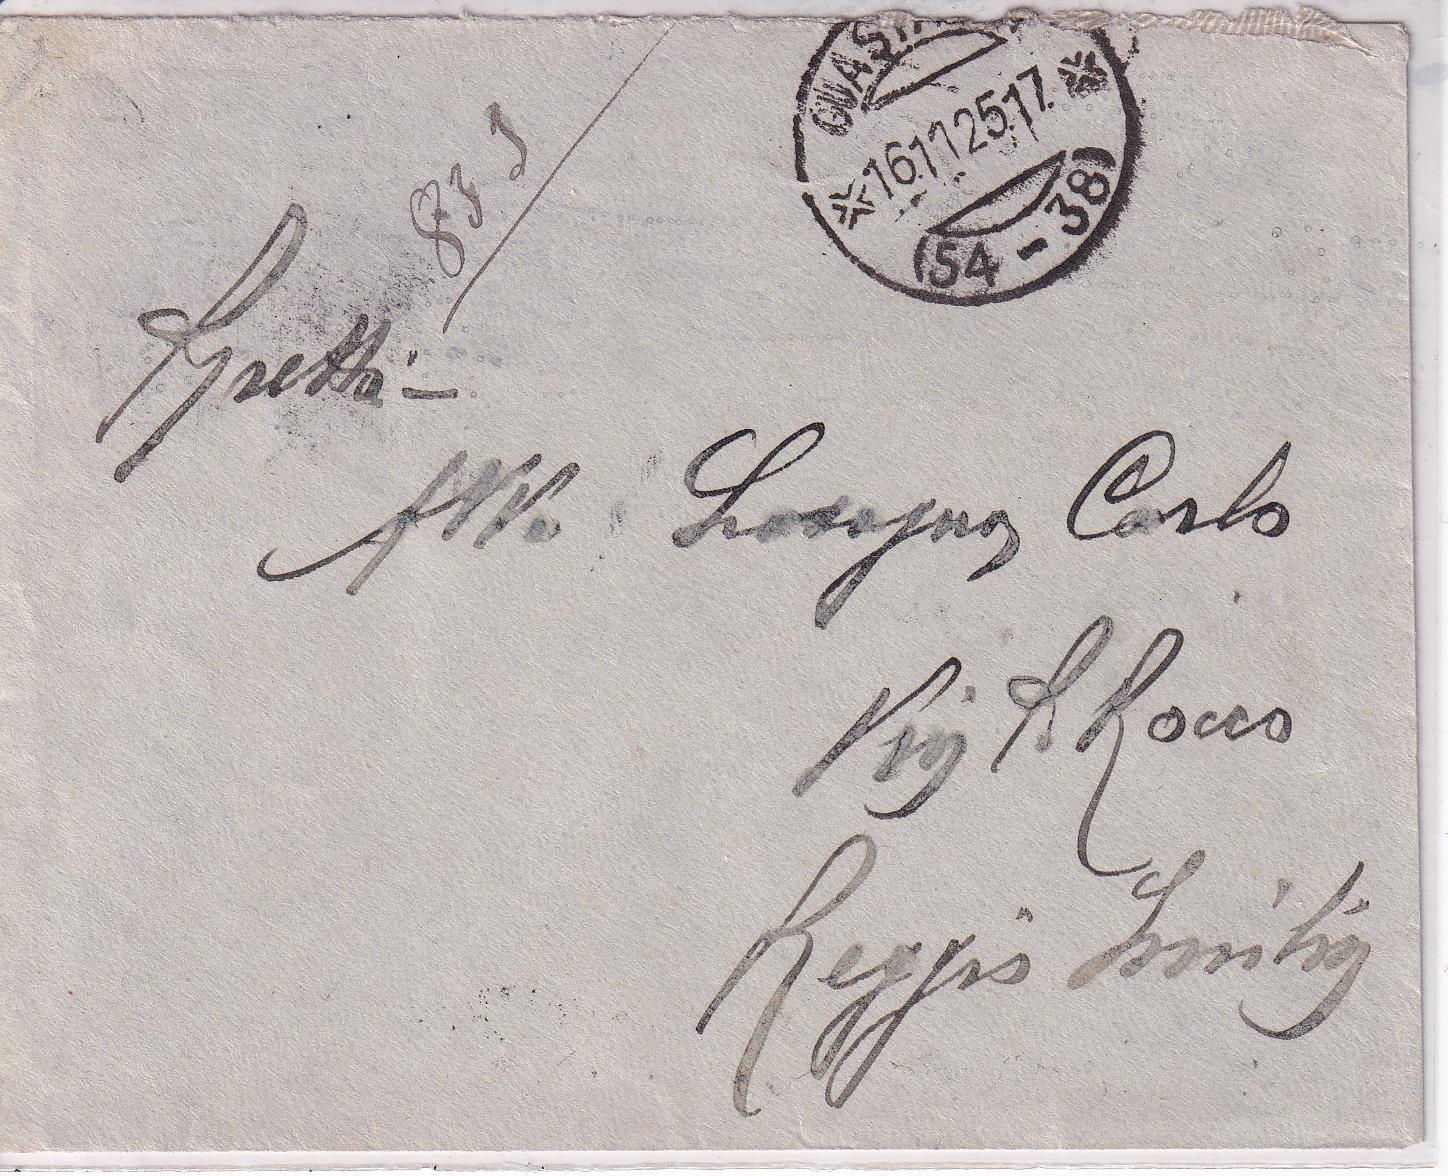 GUASTA
16.11.25.17
(54-38)
83
Spetta-
Avv. Carlo
Via S. Rocco
Reggio Emilia